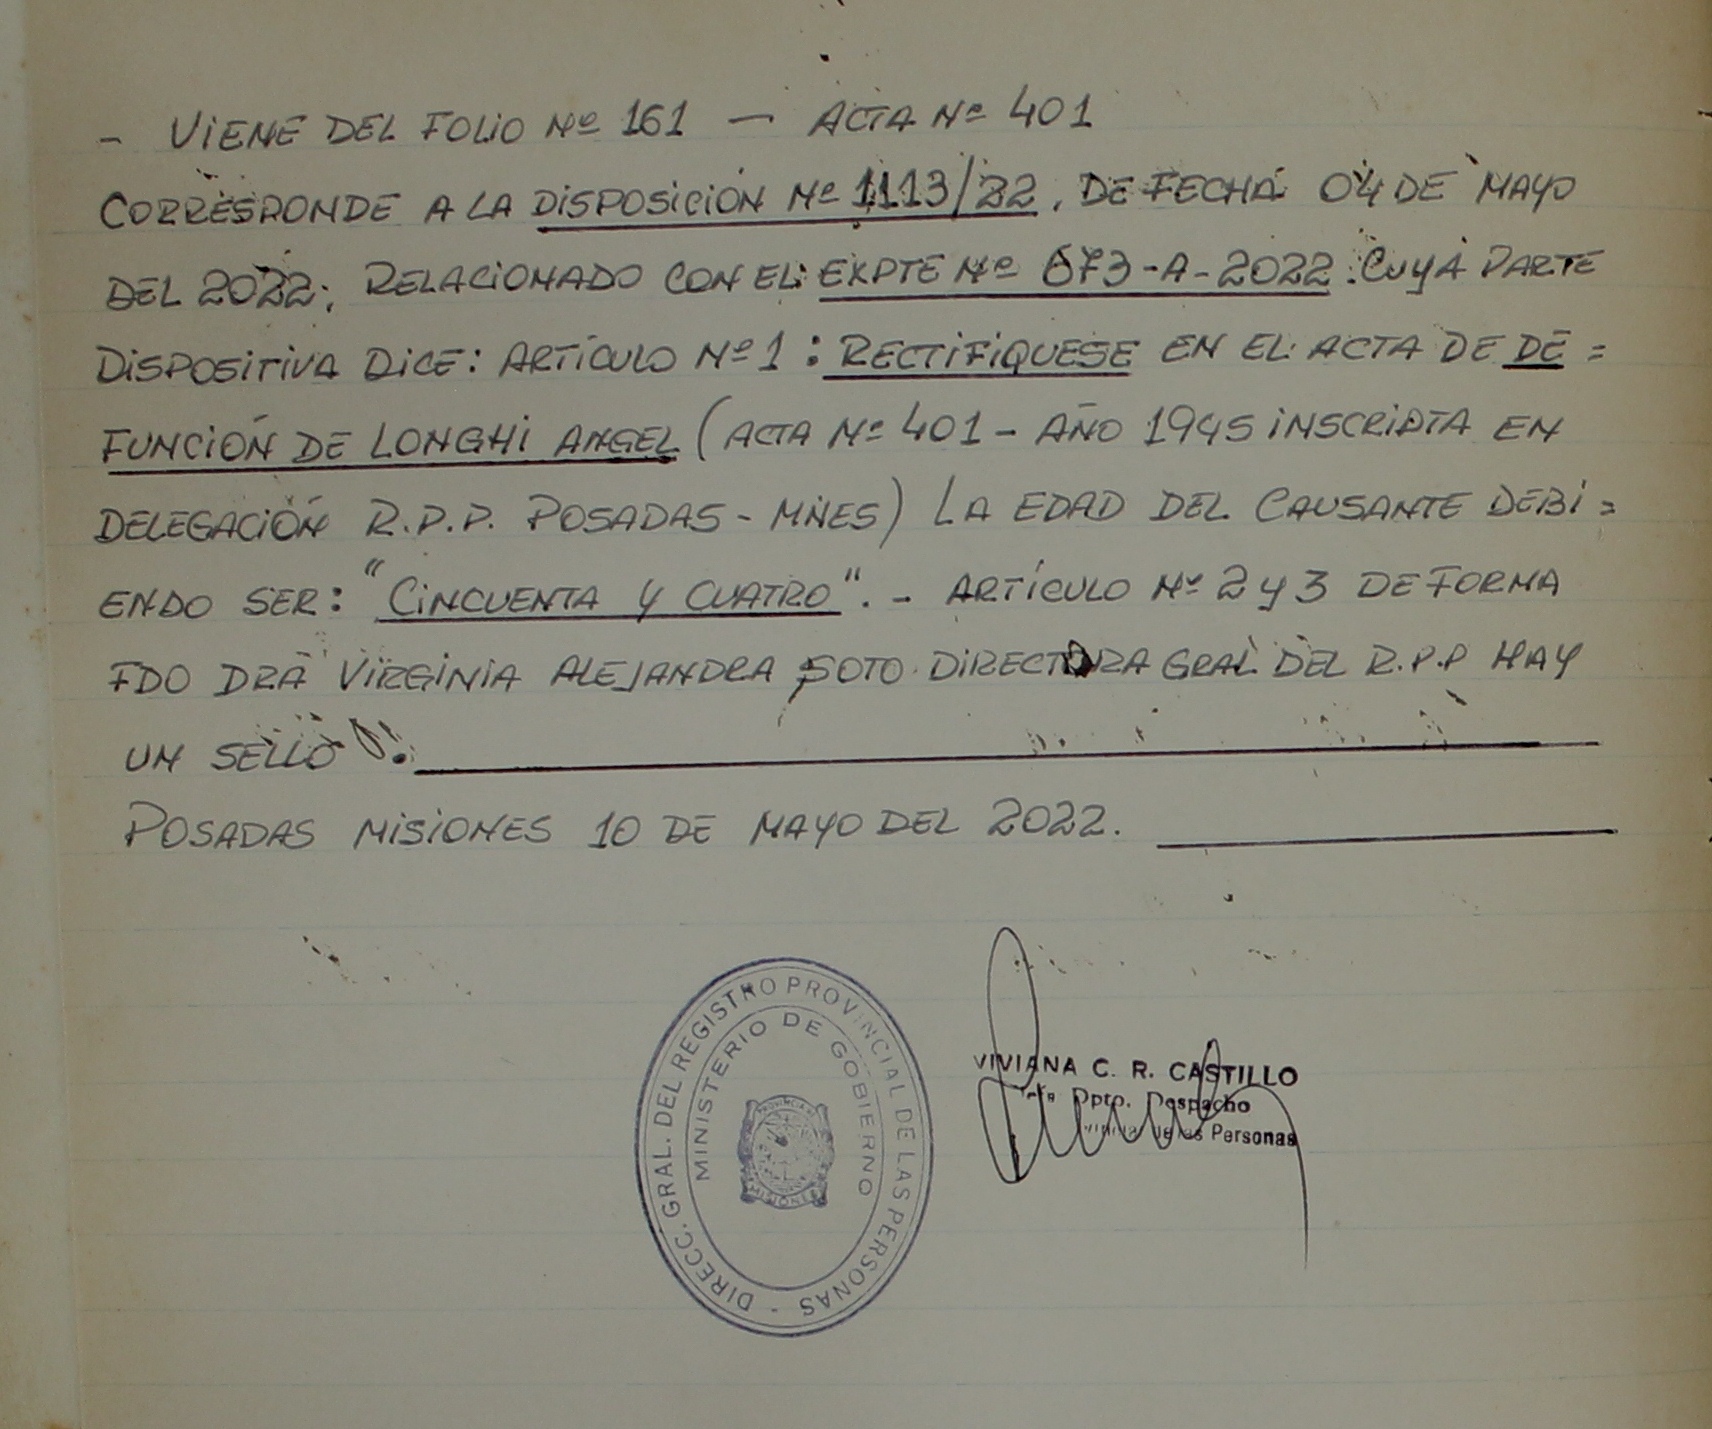 - VIENE DEL FOLIO Nº 161 — ACTA Nº 401
CORRESPONDE A LA DISPOSICIÓN Nº 1113/22, DE FECHA 04 DE MAYO
DEL 2022; RELACIONADO CON EL: EXPTE Nº 673-A-2022. CUYA PARTE
DISPOSITIVA DICE: ARTÍCULO Nº 1: RECTIFIQUESE EN EL ACTA DE DE=
FUNCIÓN DE LONGHI ANGEL (ACTA Nº 401 - AÑO 1945 INSCRIPTA EN
DELEGACIÓN R.P.P. POSADAS - MNES) LA EDAD DEL CAUSANTE DEBI=
ENDO SER: "CINCUENTA Y CUATRO". - ARTÍCULO Nº 2 Y 3 DE FORMA
FDO DRA VIRGINIA ALEJANDRA SOTO DIRECTORA GRAL DEL R.P.P HAY
UN SELLO
POSADAS MISIONES 10 DE MAYO DEL 2022.
DIRECC. GRAL. DEL REGISTRO PROVINCIAL DE LAS PERSONAS -
MINISTERIO DE GOBIERNO
PROVINCIA
MISIONES
VIVIANA C. R. CASTILLO
Dpto. Despacho
de las Personas